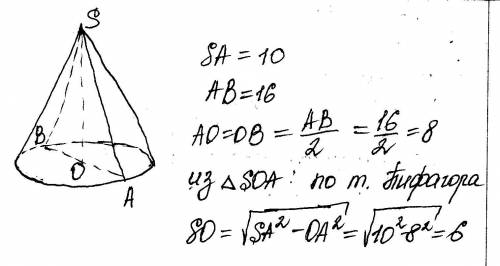 S
B
O
A
SA = 10
AB = 16
AO = OB = AB/2 = 16/2 = 8
из △SOA: по т. Пифагора
SO = √(SA² - OA²) = √(10² - 8²) = 6